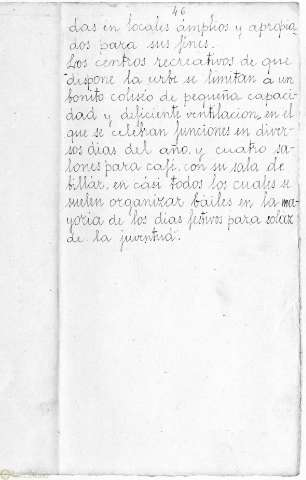 46
das en locales ámplios y apropia
dos para sus fines.
Los centros recreativos de que
dispone la urbe se limitan á un
bonito coliseo de pequeña capaci-
dad y deficiente ventilacion, en el
que se celebran funciones en diver-
sos dias del año, y cuatro sa-
lones para café, con su sala de
billar, en cási todos los cuales se
suelen organizar báiles en la ma-
yoria de los dias festivos para solaz
de la juventud.